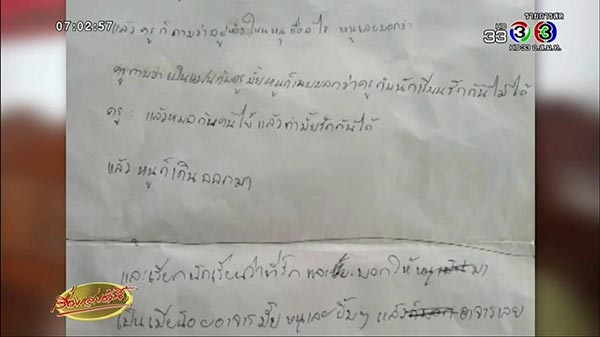 07:02:57
รายการสด
33 3 3
HD 33 อ.ส.ม.ท.
แล้ว ครู ก็ ถามว่าอยู่ห้องไหนหนูชื่ออะไร หนูเลยบอกว่า
ครูถามว่าเป็นแฟนกับครูมั้ยหนูก็เลยบอกว่าครูกับนักเรียนรักกันไม่ได้
ครู : แล้วหมอกับคนไข้ แล้วทำมั้ยรักกันได้
แล้ว หนูก็เดินออกมา
และเรียกนักเรียนว่าที่รัก และ บอกให้ มา
เป็นเมียน้อยอาจารมั้ย หนูเลย ๆ แล้ว อาจารเลย
เรื่องเล่าเช้านี้